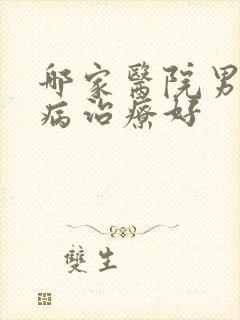 哪家醫院男
病治療好
雙生